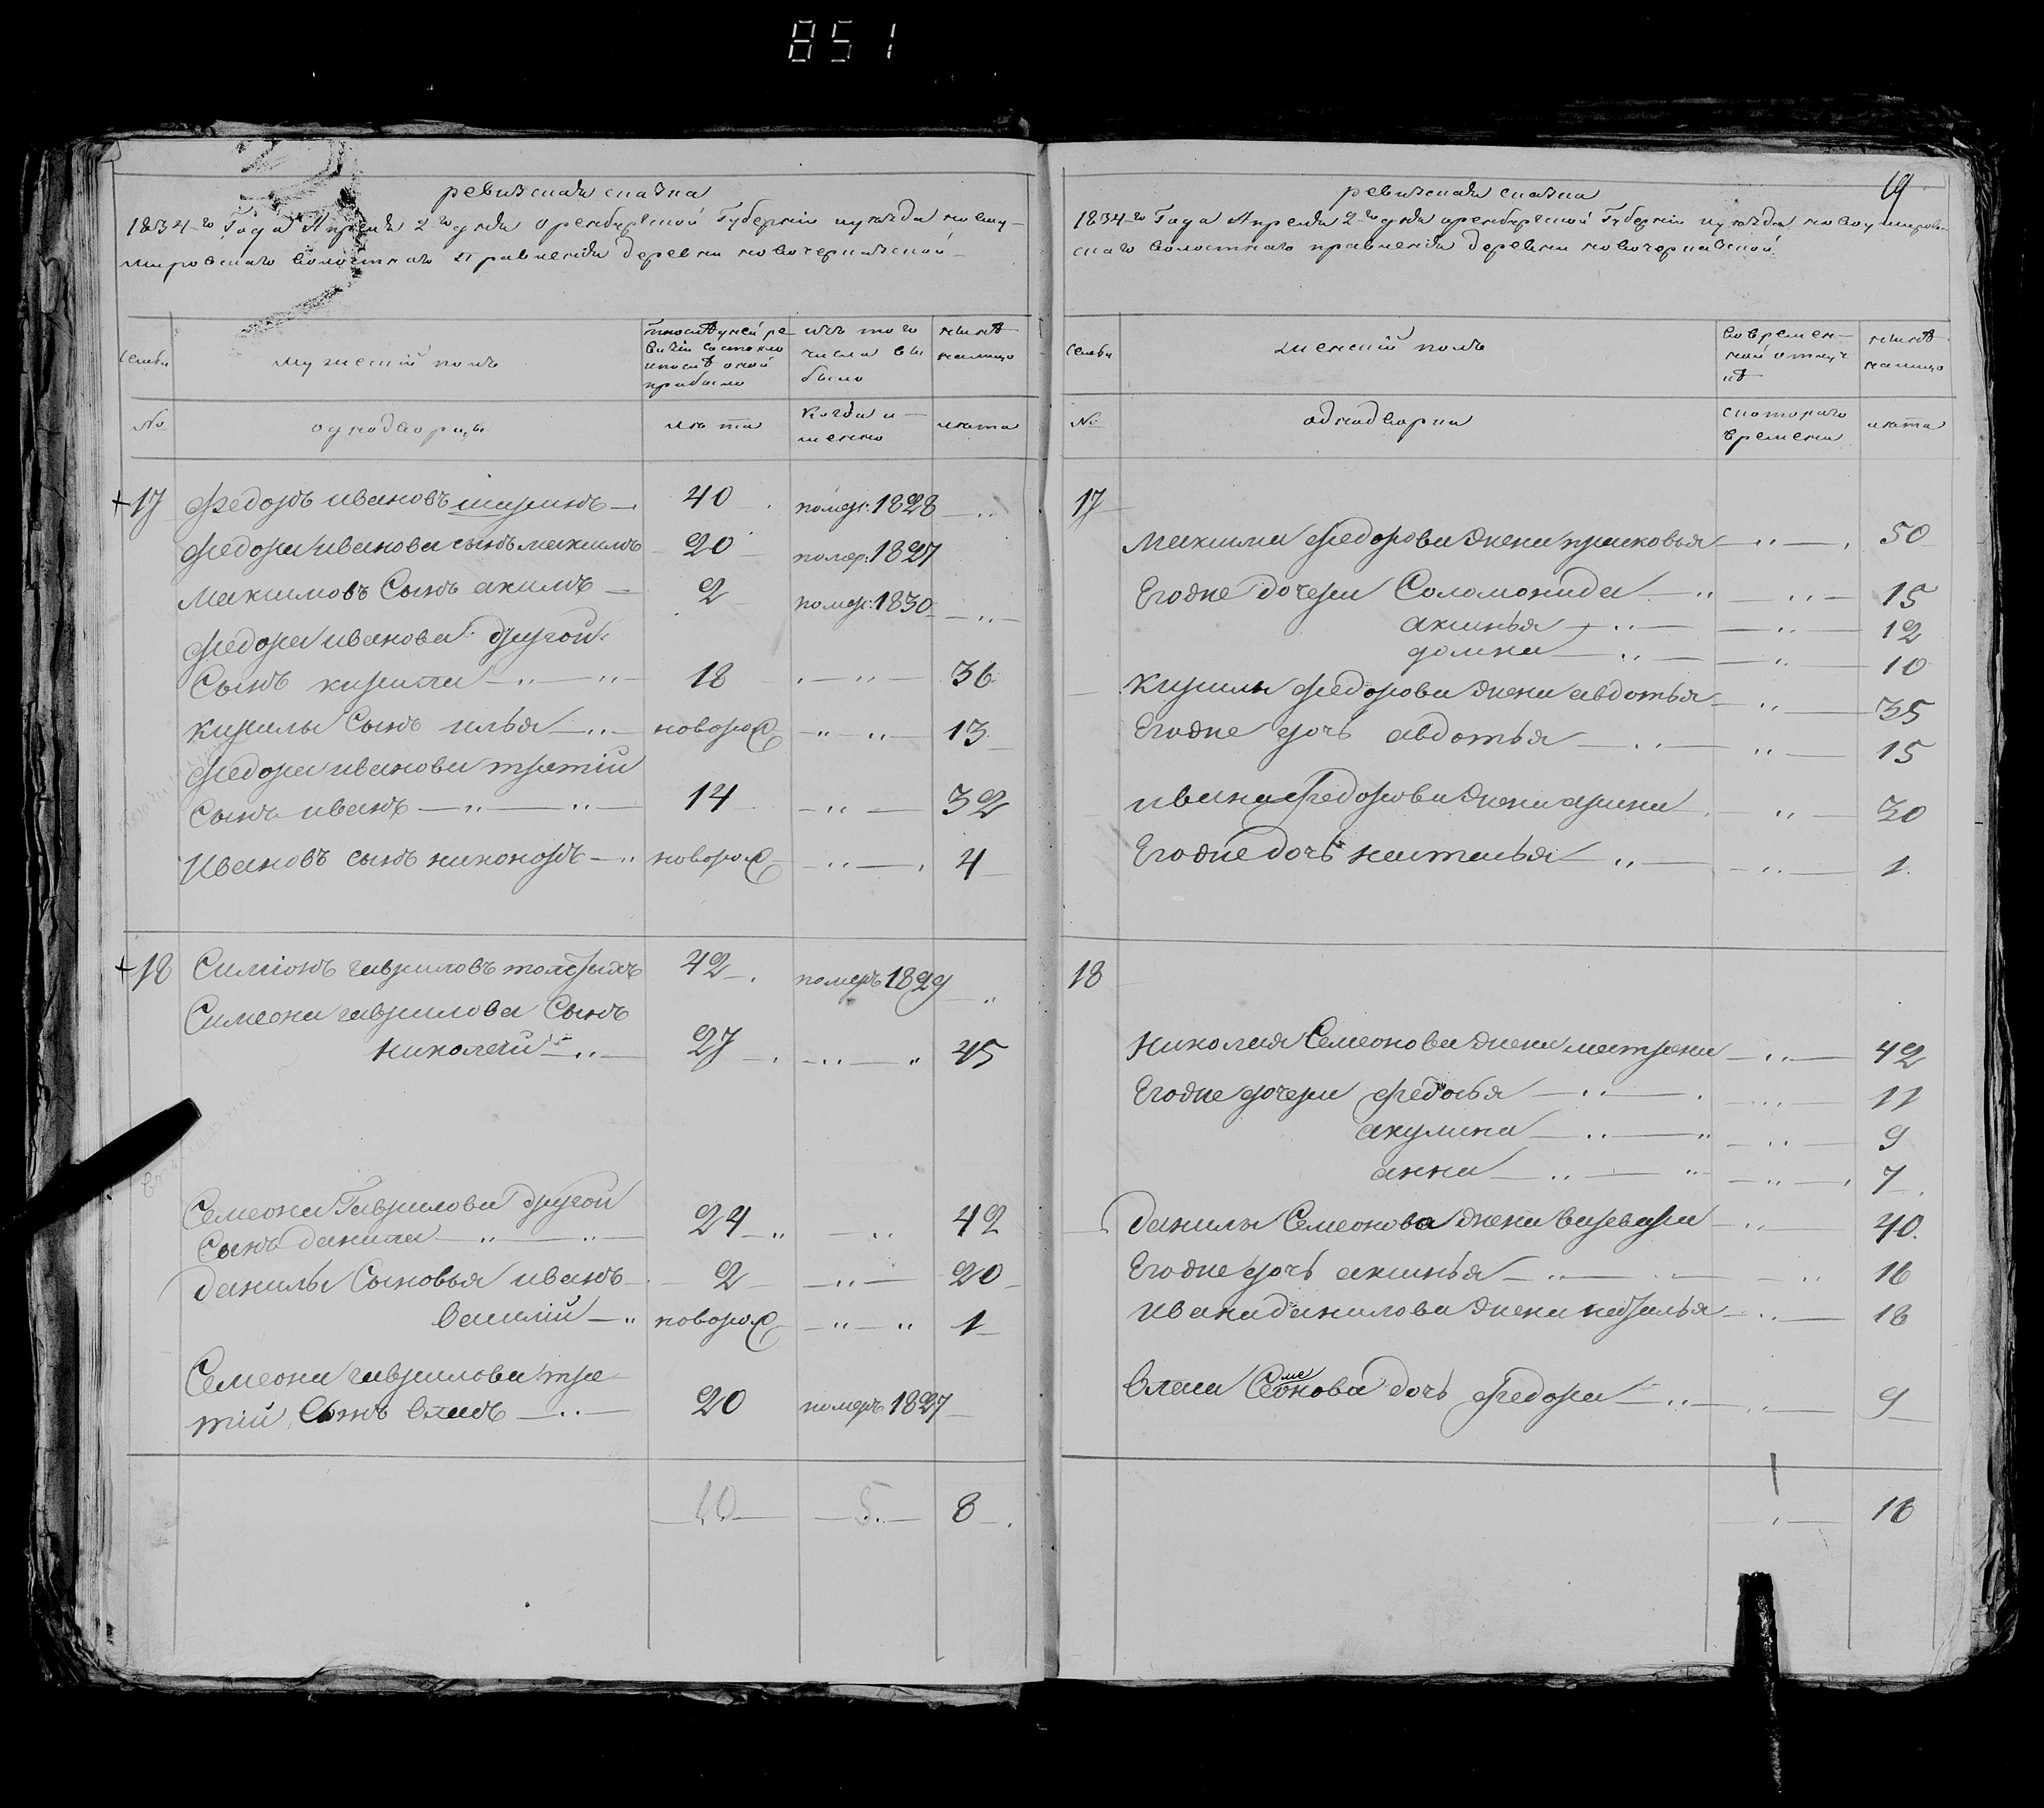 851
ревизская сказка
1834-го Года Апреля 2го дня Оренбургской Губернии и уезда
волостнаго правления деревни новочеркаской
семьи
мужеский полъ
по последней ревизии состояло и после оной прибыло
изъ того числа выбыло
ныне на лицо
№
однодворцы
лета
когда именно
лета
17 федоръ ивановъ 40 помер: 1828
федора иванова сынъ максимъ 20 помер: 1827
максимовъ Сынъ акимъ 2 помер: 1830
федора иванова другой
Сынъ кирила 18 36
кирилы Сынъ илья новорож 13
федора иванова третий
Сынъ иванъ 14 32
Ивановъ сынъ никоноръ новорож 4
18 Симионъ гавриловъ 42 померъ 1829
Симеона гаврилова Сынъ
николай 27 45
Семеона Гаврилова другой
Сынъ данила 24 42
данилы Сыновья иванъ 2 20
василий новорож 1
Семеона гаврилова тре
тий Сынъ власъ 20 померъ 1827
10 5 8
19
ревизская сказка
1834-го Года Апреля 2го дня оренбургской Губернии и уезда
скаго волостнаго правления деревни новочеркаской
семьи
женский полъ
во временной отлучке
ныне на лицо
№
однодворки
с котораго времени
лета
17
максима федорова жена прасковья 50
Егоже дочери Соломонида 15
аксинья 12
домна 10
Кирилы федорова жена авдотья 35
Егоже дочь авдотья 15
ивана федорова жена арина 30
Егоже дочь наталья 1
18
николая Семеонова жена матрена 42
Егоже дочери федосья 11
акулина 9
анна 7
данилы Семеонова жена варвара 40
Егоже дочь аксинья 16
Ивана данилова жена наталья 18
Власа Семеонова дочь федора 9
16